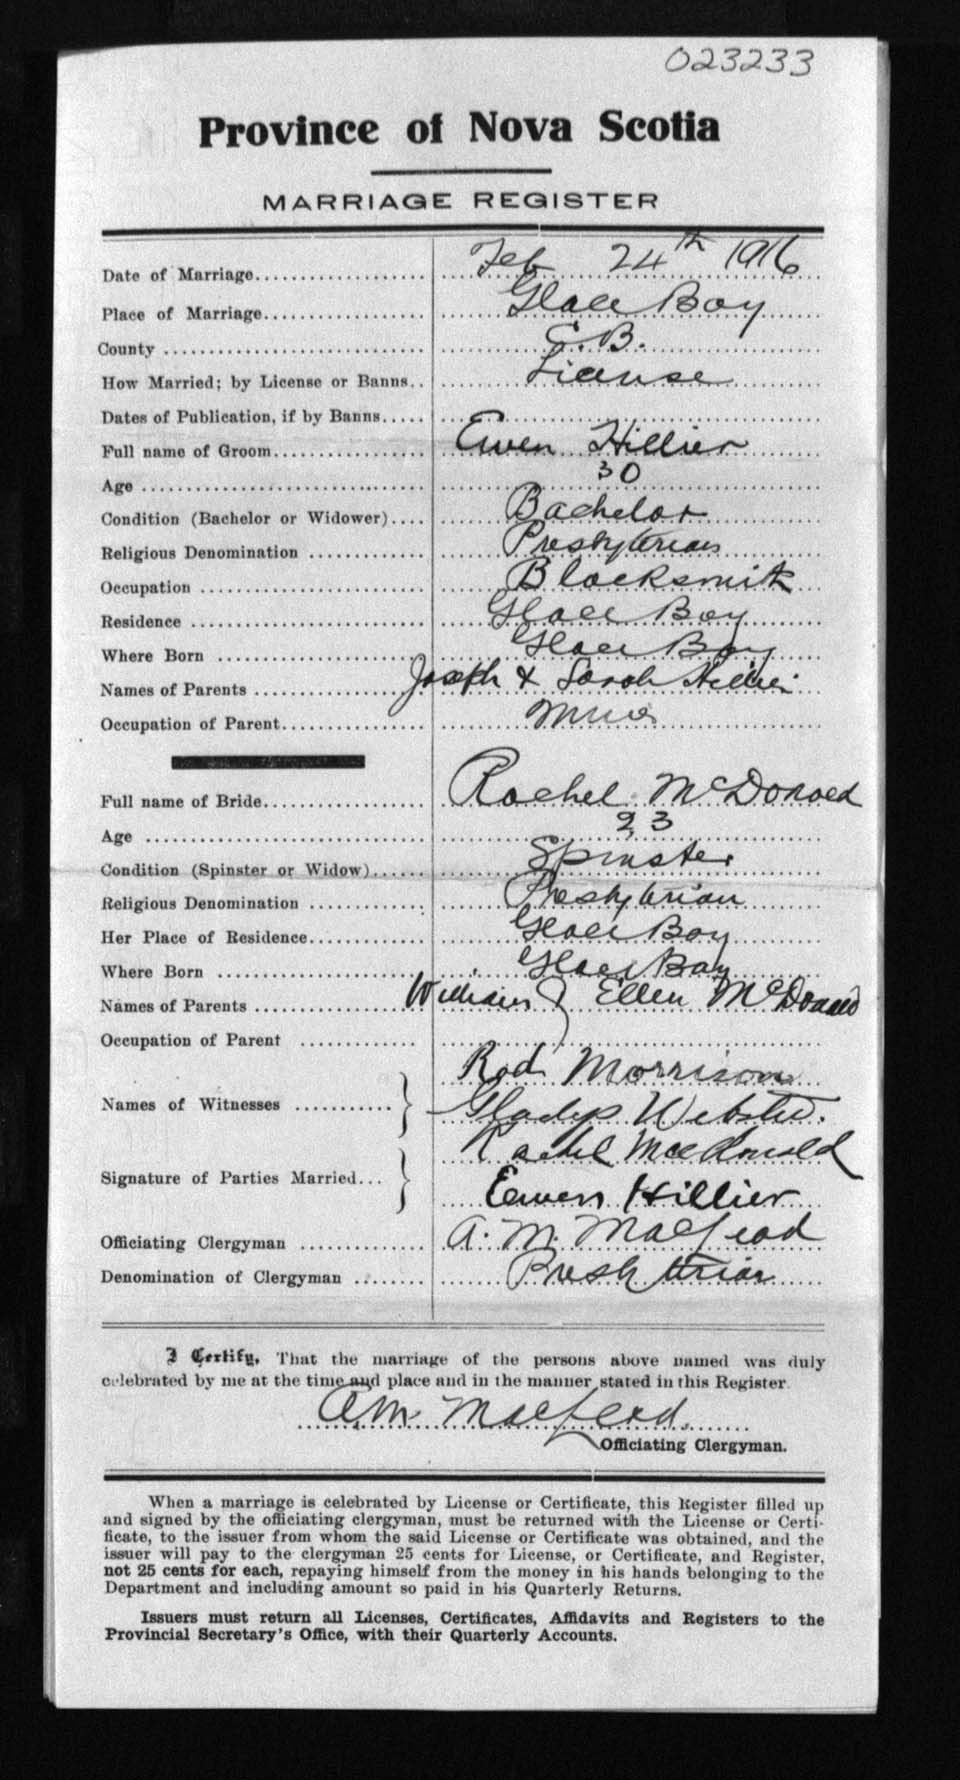 023233
Province of Nova Scotia
MARRIAGE REGISTER
Date of Marriage.................... Feb 24th 1916
Place of Marriage.................... Glace Bay
County ............................ C.B.
How Married; by License or Banns.. License
Dates of Publication, if by Banns.....
Full name of Groom.................. Ewen Hillier
Age ............................... 30
Condition (Bachelor or Widower).... Bachelor
Religious Denomination ............. Presbyterian
Occupation ......................... Blacksmith
Residence .......................... Glace Bay
Where Born ......................... Glace Bay
Names of Parents .................. Joseph & Sarah Hillier
Occupation of Parent................ Miner
Full name of Bride.................. Rachel McDonald
Age ............................... 23
Condition (Spinster or Widow)...... Spinster
Religious Denomination ............. Presbyterian
Her Place of Residence............. Glace Bay
Where Born ......................... Glace Bay
Names of Parents .................. William & Ellen McDonald
Occupation of Parent .............
Rod. Morrison
Names of Witnesses ...........
Gladys Webster.
Rachel MacDonald
Signature of Parties Married...
Eewen Hillier
Officiating Clergyman .............. A. M. MacLeod
Denomination of Clergyman ........ Presbyterian
I Certify, That the marriage of the persons above named was duly
celebrated by me at the time and place and in the manner stated in this Register.
A.M. MacLeod.
Officiating Clergyman.
When a marriage is celebrated by License or Certificate, this Register filled up
and signed by the officiating clergyman, must be returned with the License or Certi-
ficate, to the issuer from whom the said License or Certificate was obtained, and the
issuer will pay to the clergyman 25 cents for License, or Certificate, and Register,
not 25 cents for each, repaying himself from the money in his hands belonging to the
Department and including amount so paid in his Quarterly Returns.
Issuers must return all Licenses, Certificates, Affidavits and Registers to the
Provincial Secretary's Office, with their Quarterly Accounts.